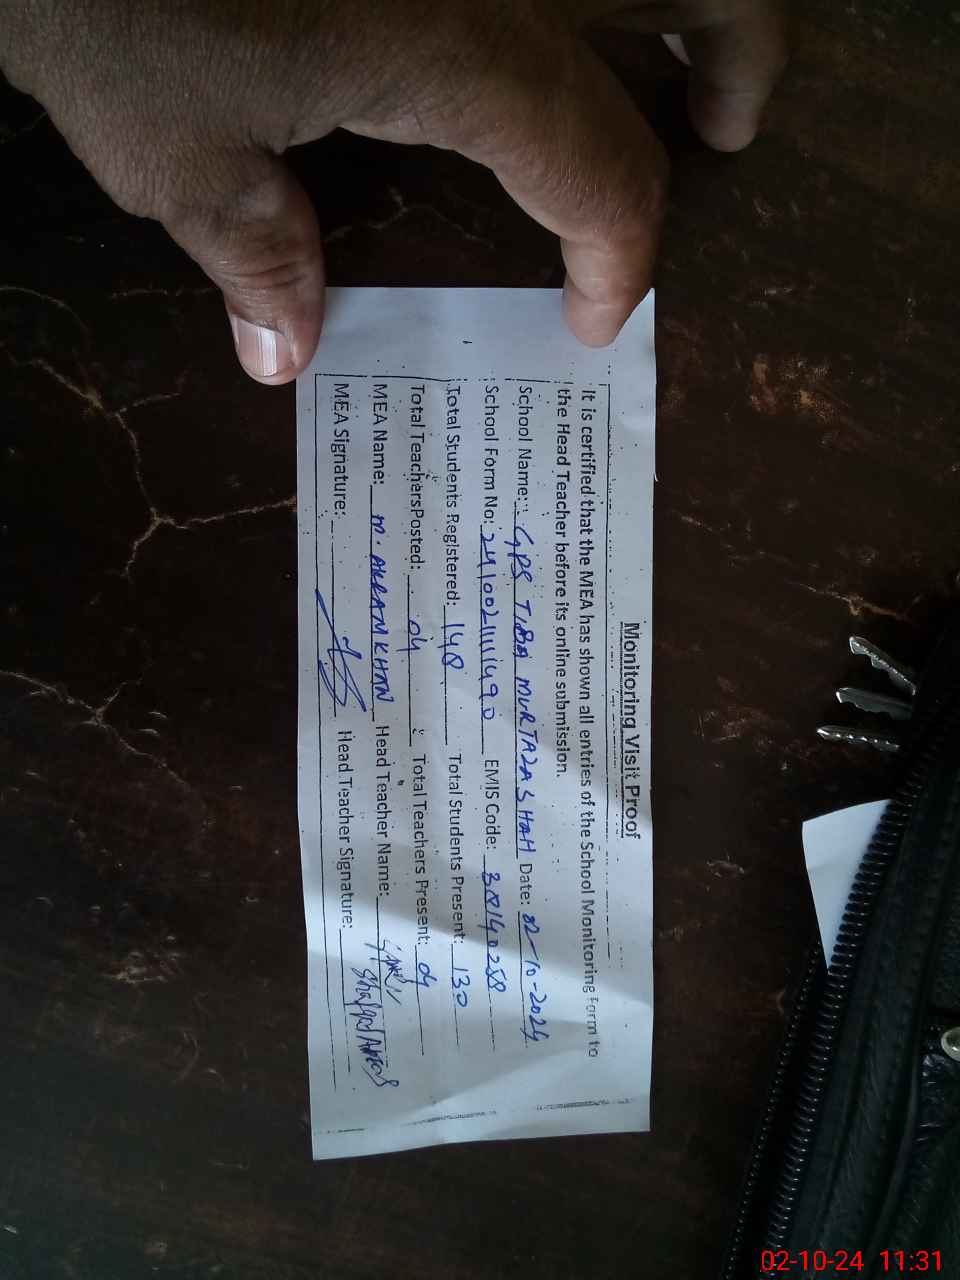 Monitoring Visit Proof
It is certified that the MEA has shown all entries of the School Monitoring Form to
the Head Teacher before its online submission.
School Name: GPS TIBA MURTAZA SHAH Date: 02-10-2024
School Form No: 2410021111490 EMIS Code: 38140258
Total Students Registered: 148 Total Students Present: 130
Total Teachers Posted: 04 Total Teachers Present: 04
MEA Name: M. AKRAM KHAN Head Teacher Name:
MEA Signature: Head Teacher Signature:
02-10-24 11:31